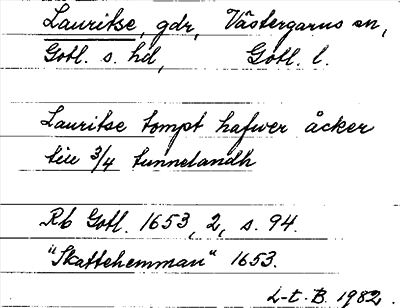 Lauritse, gdr, Västergarns sn,
Gotl. s. hd, Gotl. l.
Lauritse tompt hafwer åcker
till 3/4 tunnelandh
Rb Gotl. 1653, 2, s. 94.
"Skattehemman" 1653.
L-t. B. 1982.